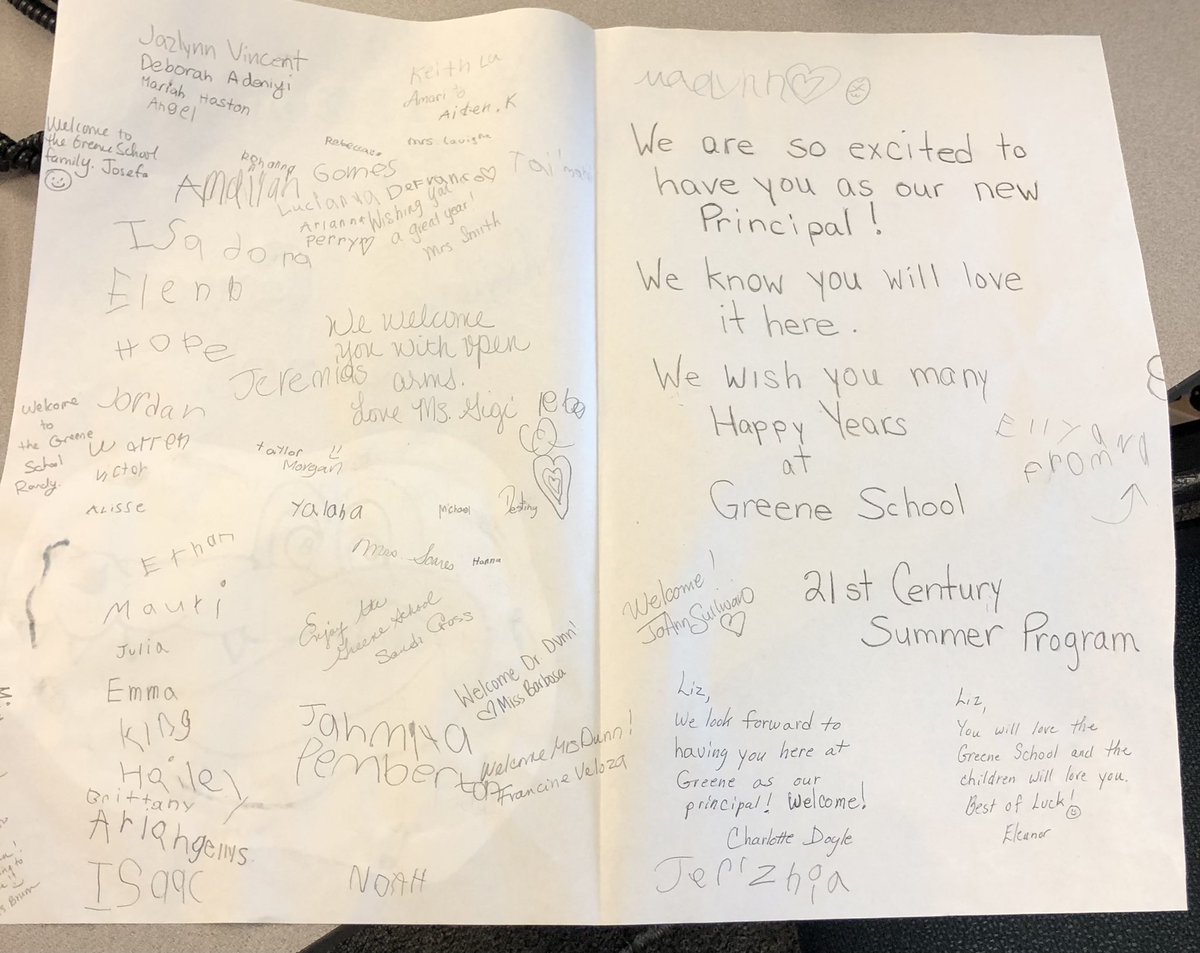 Jazlynn Vincent
Deborah Adeniyi
Mariah Haston
Angel
Keith La
Amari
Aiden. K
Welcome to
the Greene School
family. Josefa
Rohanna
Rebecca
Mrs. Lavigne
Amaiyah Gomes
Luciana DeFranco
Arianna
Perry
Wishing you
a great year!
Mrs Smith
Isadora
Elena
Hope
We welcome
you with open
arms.
Love Ms. Gigi
Jeremias
Jordan
Welcome
to
the Greene
School
Randy.
Warren
Victor
Taylor
Morgan
Alisse
Yalaha
Michael
Destiny
Ethan
Mrs. Soares
Hanna
Mauri
Enjoy the
Greene School
Sandi Gross
Julia
Emma
Welcome Dr Dunn!
Miss Barbosa
King
Jahmiya
Pemberton
Welcome Mrs Dunn!
Francine Veloza
Hailey
Brittany
Ariangelys
Isaac
NOAH
We are so excited to
have you as our new
Principal!
We know you will love
it here.
We wish you many
Happy Years
at
Greene School
Ellya
Aromra
21st Century
Summer Program
Welcome!
JoAnn Sullivan
Liz,
We look forward to
having you here at
Greene as our
principal! Welcome!
Charlotte Doyle
Liz,
You will love the
Greene School and the
children will love you.
Best of Luck!
Eleanor
Jer'zhia